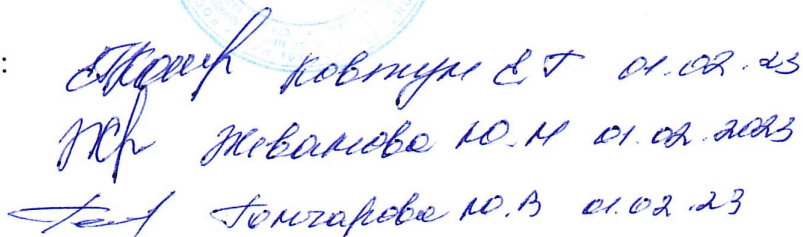 : Ковтун Е Г 01.02.23
Жеванова Ю.Н 01.02.2023
Гончарова Ю.В 01.02.23